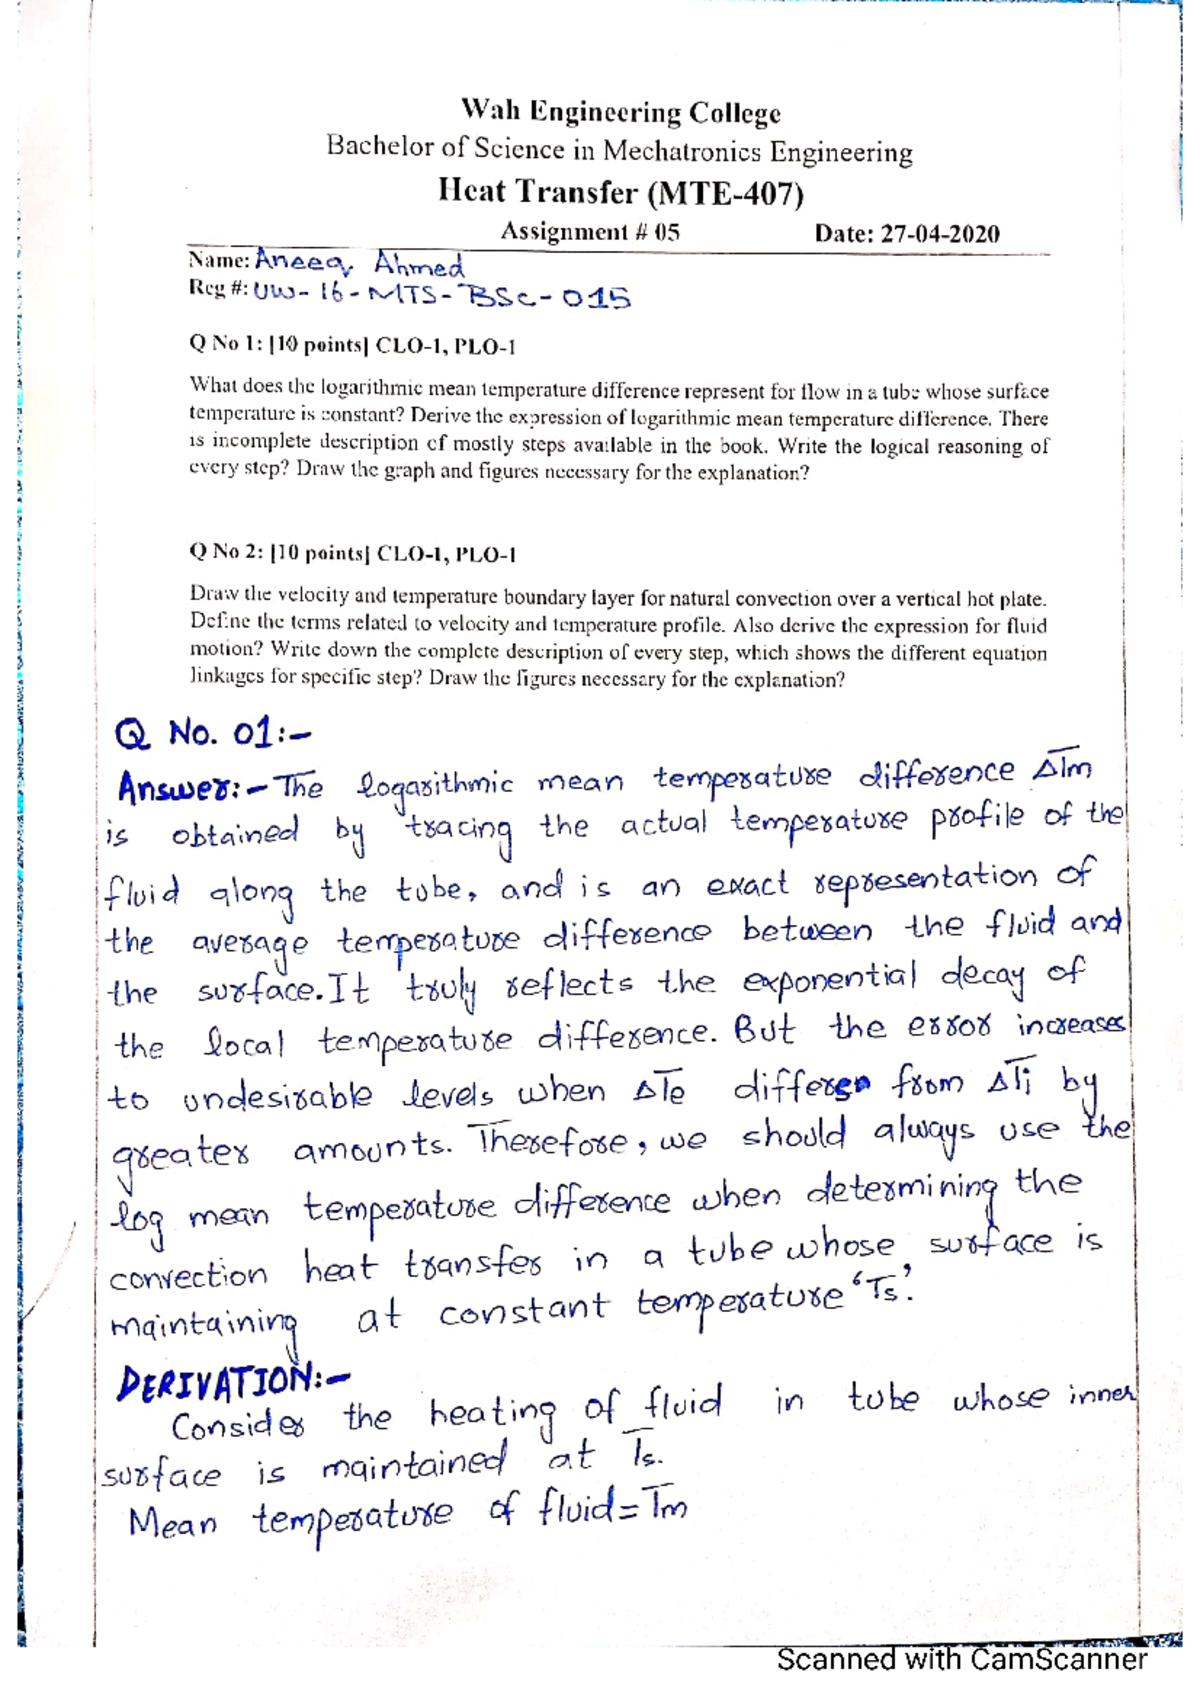 Wah Engineering College
Bachelor of Science in Mechatronics Engineering
Heat Transfer (MTE-407)
Assignment # 05 Date: 27-04-2020
Name: Aneeq Ahmed
Reg #: UW-16-MTS-BSc-015
Q No 1: [10 points] CLO-1, PLO-1
What does the logarithmic mean temperature difference represent for flow in a tube whose surface
temperature is constant? Derive the expression of logarithmic mean temperature difference. There
is incomplete description of mostly steps available in the book. Write the logical reasoning of
every step? Draw the graph and figures necessary for the explanation?
Q No 2: [10 points] CLO-1, PLO-1
Draw the velocity and temperature boundary layer for natural convection over a vertical hot plate.
Define the terms related to velocity and temperature profile. Also derive the expression for fluid
motion? Write down the complete description of every step, which shows the different equation
linkages for specific step? Draw the figures necessary for the explanation?
Q No. 01:-
Answer:- The logarithmic mean temperature difference ΔTm
is obtained by tracing the actual temperature profile of the
fluid along the tube, and is an exact representation of
the average temperature difference between the fluid and
the surface. It truly reflects the exponential decay of
the local temperature difference. But the error increases
to undesirable levels when ΔTe differs from ΔTi by
greater amounts. Therefore, we should always use the
log mean temperature difference when determining the
convection heat transfer in a tube whose surface is
maintaining at constant temperature 'Ts'.
DERIVATION:-
Consider the heating of fluid in tube whose inner
surface is maintained at Ts.
Mean temperature of fluid = Tm
Scanned with CamScanner